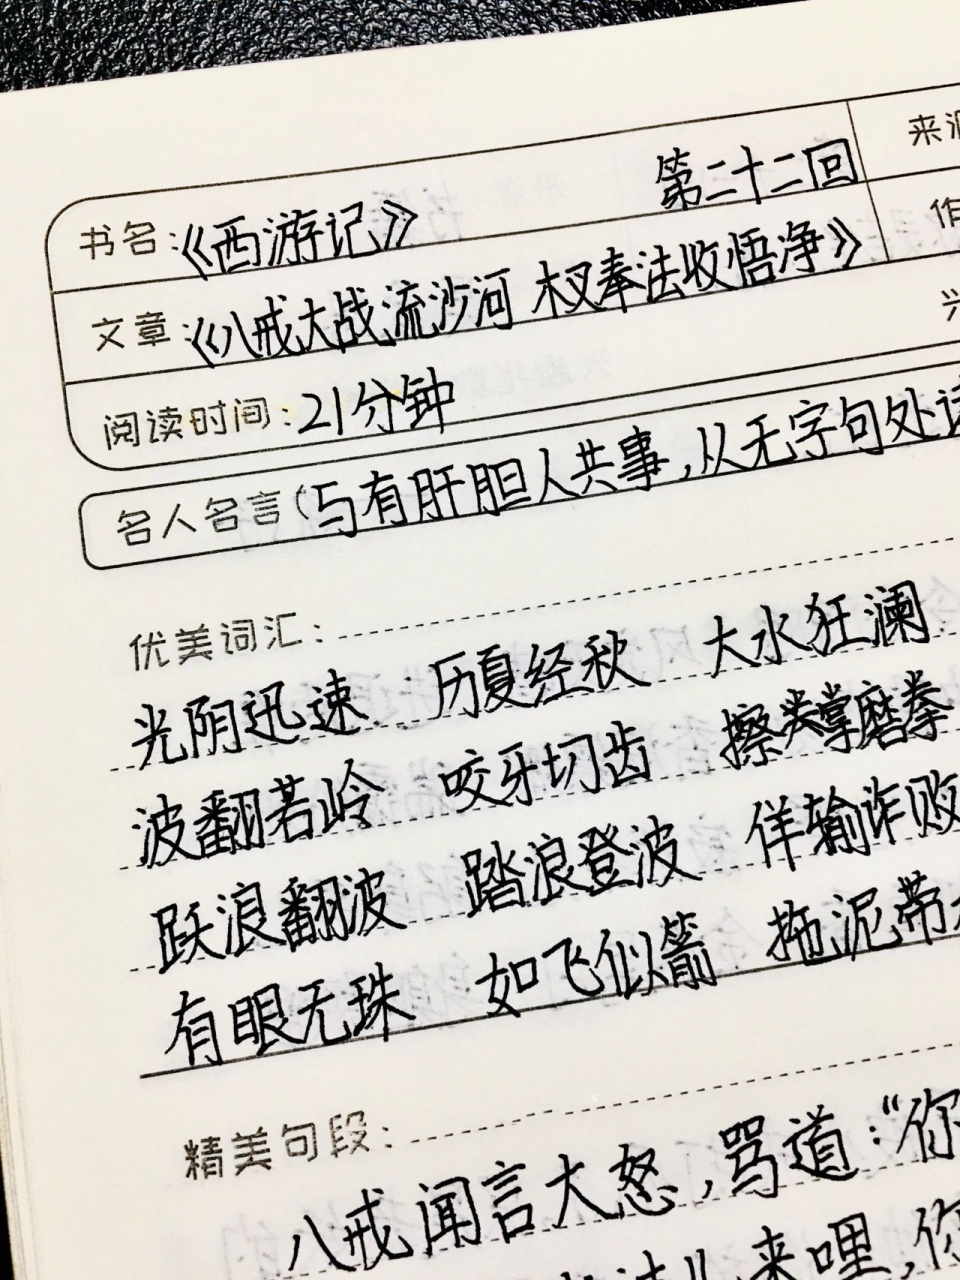 书名:《西游记》 第二十二回 来源
文章:《八戒大战流沙河 木叉奉法收悟净》 作
兴
阅读时间:21分钟
名人名言(与有肝胆人共事,从无字句处读
优美词汇:
光阴迅速 历夏经秋 大水狂澜
波翻若岭 咬牙切齿 擦掌磨拳
跃浪翻波 踏浪登波 佯输诈败
有眼无珠 如飞似箭 拖泥带
精美句段:
八戒闻言大怒,骂道:“你
来哩,你